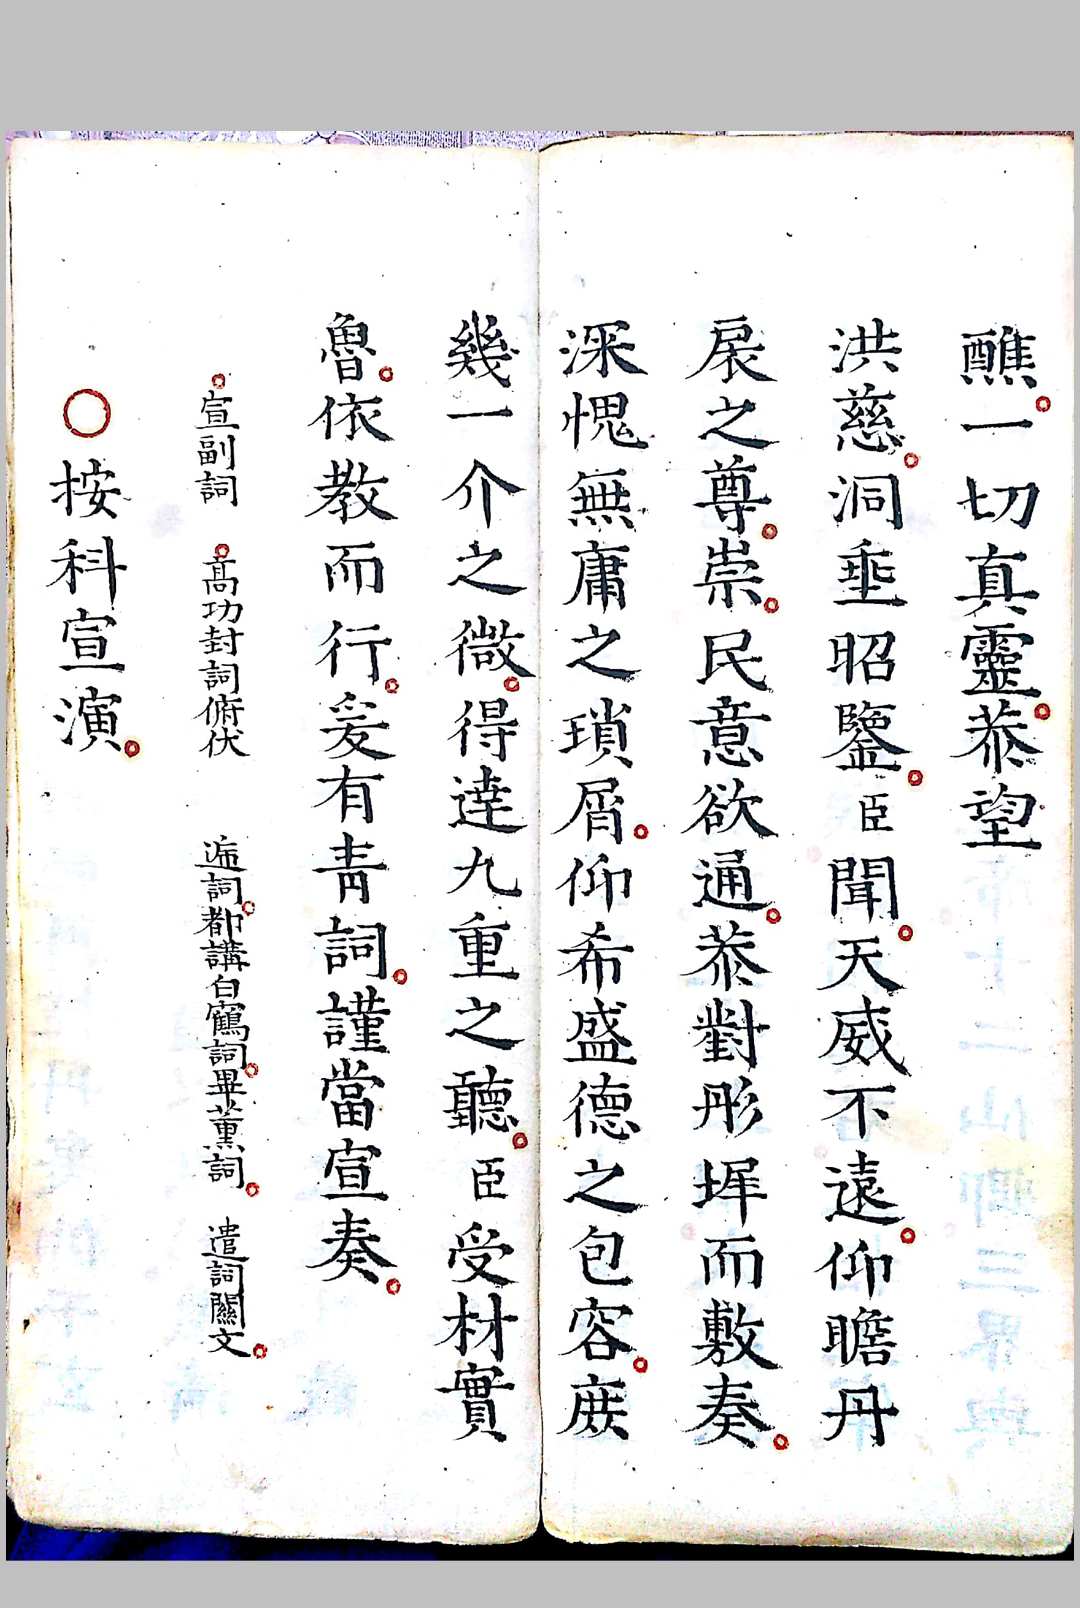 醮。一切真靈。恭望
洪慈。洞垂昭鑒。臣聞。天威不遠。仰瞻丹
扆之尊。崇。民意欲通。恭對彤墀而敷奏。
深愧無庸之瑣屑。仰希盛德之包容。庶
幾一介之微。得達九重之聽。臣受材實
魯。依教而行。爰有青詞。謹當宣奏。
。宣副詞 。高功封詞俯伏 遞詞。都講白鶴詞。畢薰詞。 遣詞關文。
○按科宣演。